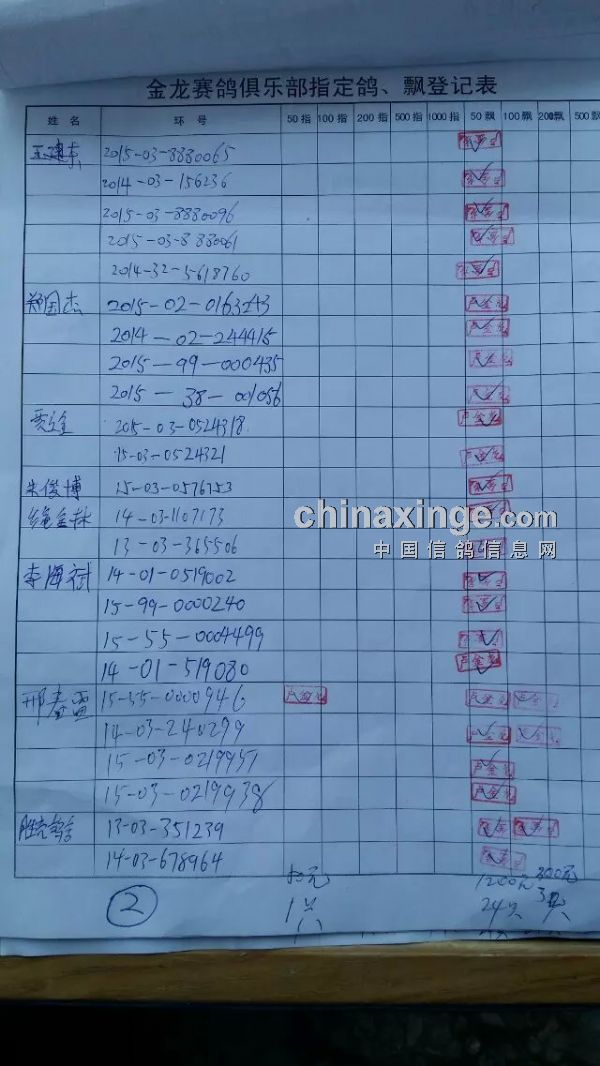 金龙赛鸽俱乐部指定鸽、飘登记表
姓名 环号 50指 100指 200指 500指 1000指 50飘 100飘 200飘 500飘
2015-03-8880065
2014-03-156236
2015-03-8880096
2015-03-8880061
2014-32-5618760
郑国杰 2015-02-0163243
2014-02-244415
2015-99-000435
2015-38-001056
2015-03-0524318
15-03-0524321
朱俊博 15-03-0576153
14-03-1107173
13-03-365506
李海斌 14-01-0519002
15-99-0000240
15-55-0004499
14-01-519080
邢春雷 15-55-0000946 卢金龙 卢金龙 卢金龙
14-03-240299
15-03-0219951
15-03-0219938
13-03-351239
14-03-678964
50元 1200元 300元
② 1只 24只 3只
chinaxinge.com
中国信鸽信息网